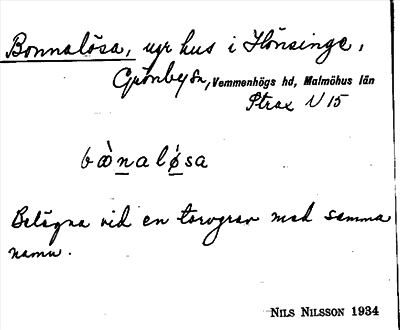 Bonnalösa, ugr hus i Hönsinge,
Grönby sn, Vemmenhögs hd, Malmöhus län
Ptrax V 15
bὼnalǿsa
Belägna vid en torvgrav med samma
namn.
NILS NILSSON 1934